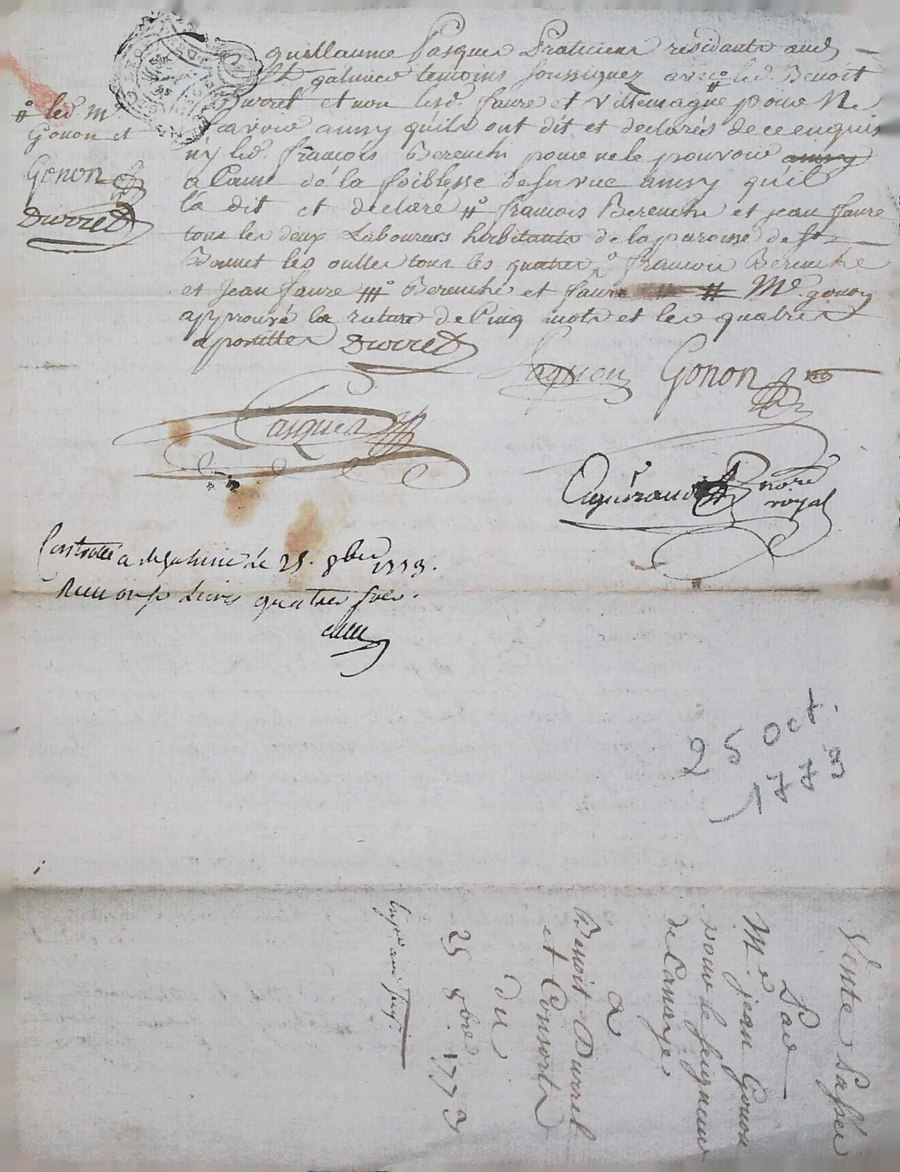 guillaume Pasquer Praticiens residants aud
St galmier temoins soussignez avec # led. Benoit
Durret et non lesd. faure et villemagne pour ne
scavoir ainsy qu'ils ont dit et declarés de ce enquis
n'y led. francois Berenche pour ne le pouvoir ainsy
a cause de la foiblesse de sa vue ainsy qu'il
la dit et declare # francois Berenche et jean faure
tous les deux Laboureurs habitants de la paroisse de St
Bonnet les oulles tous les quatre # francois Berenche
et Jean faure # Berenche et faure # Me gonon
approuvé la rature de Cinq mots et les quatres
apostilles Durret
# led m
Gonon et
Gonon
Durret
Gonon
Pasquer
Pugnieu
nore
royal
Controllé a St galmier Le 25. 8bre 1773.
Recu livres quatre sols.
25 oct.
1773
Vente Passée
Par
Me jean Gonon
pour le seigneur
de
a
Benoit Durret
et Consorts
du
25 8bre 1773